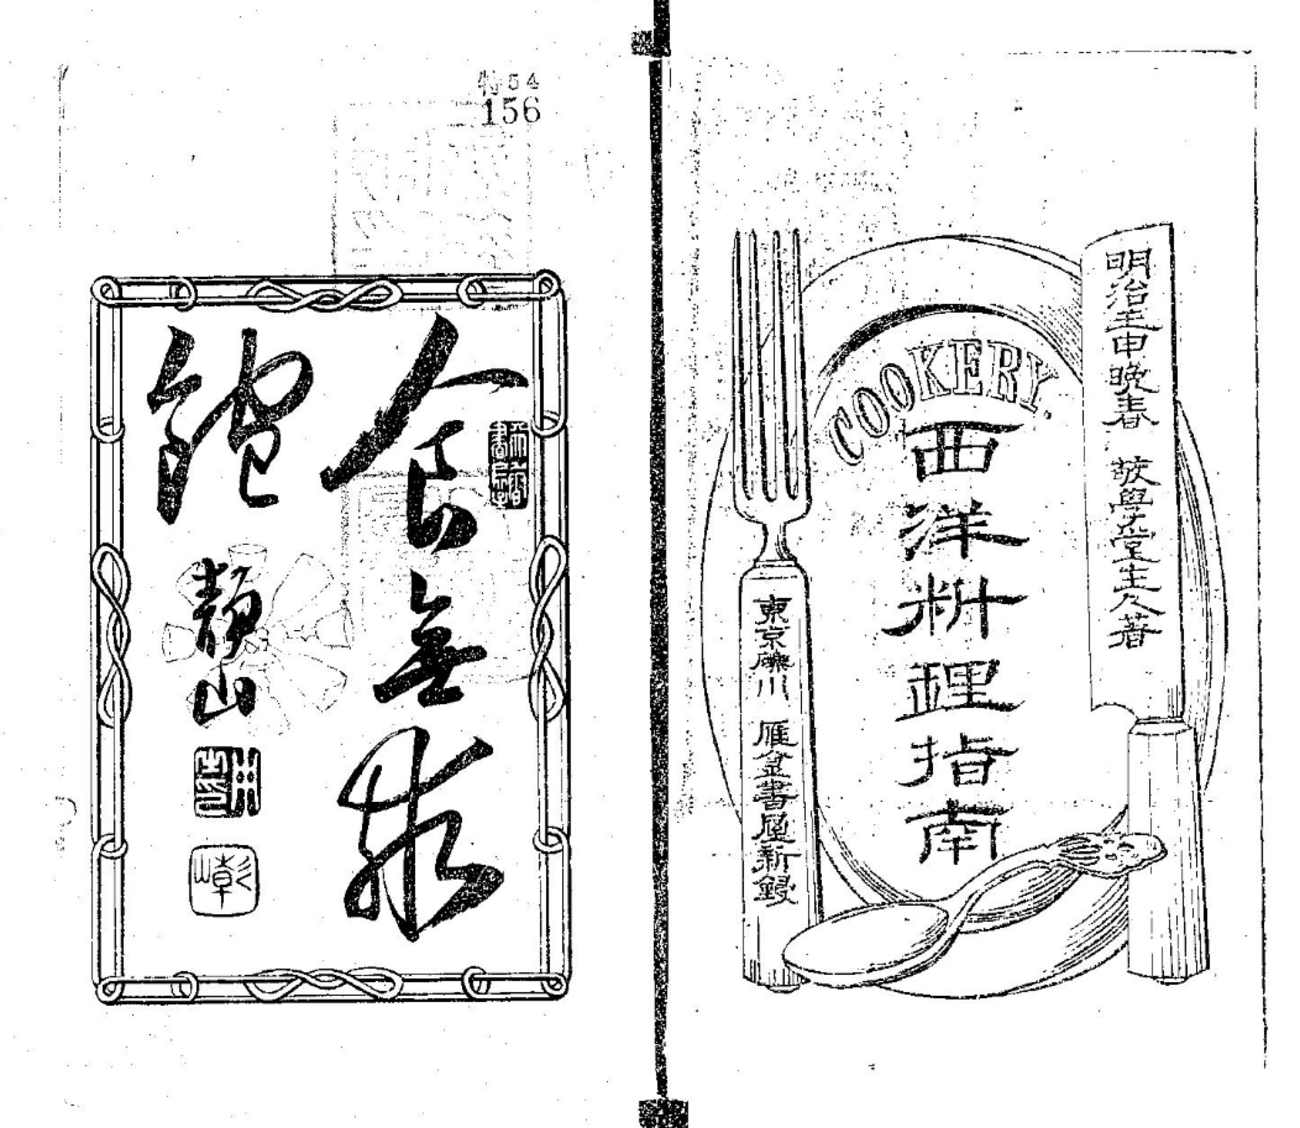 明治壬申晩春 敬學堂主人著
COOKERY.
西洋料理指南
東京礫川 雁金書屋新鐫
特54
156
食無求
飽
靜山